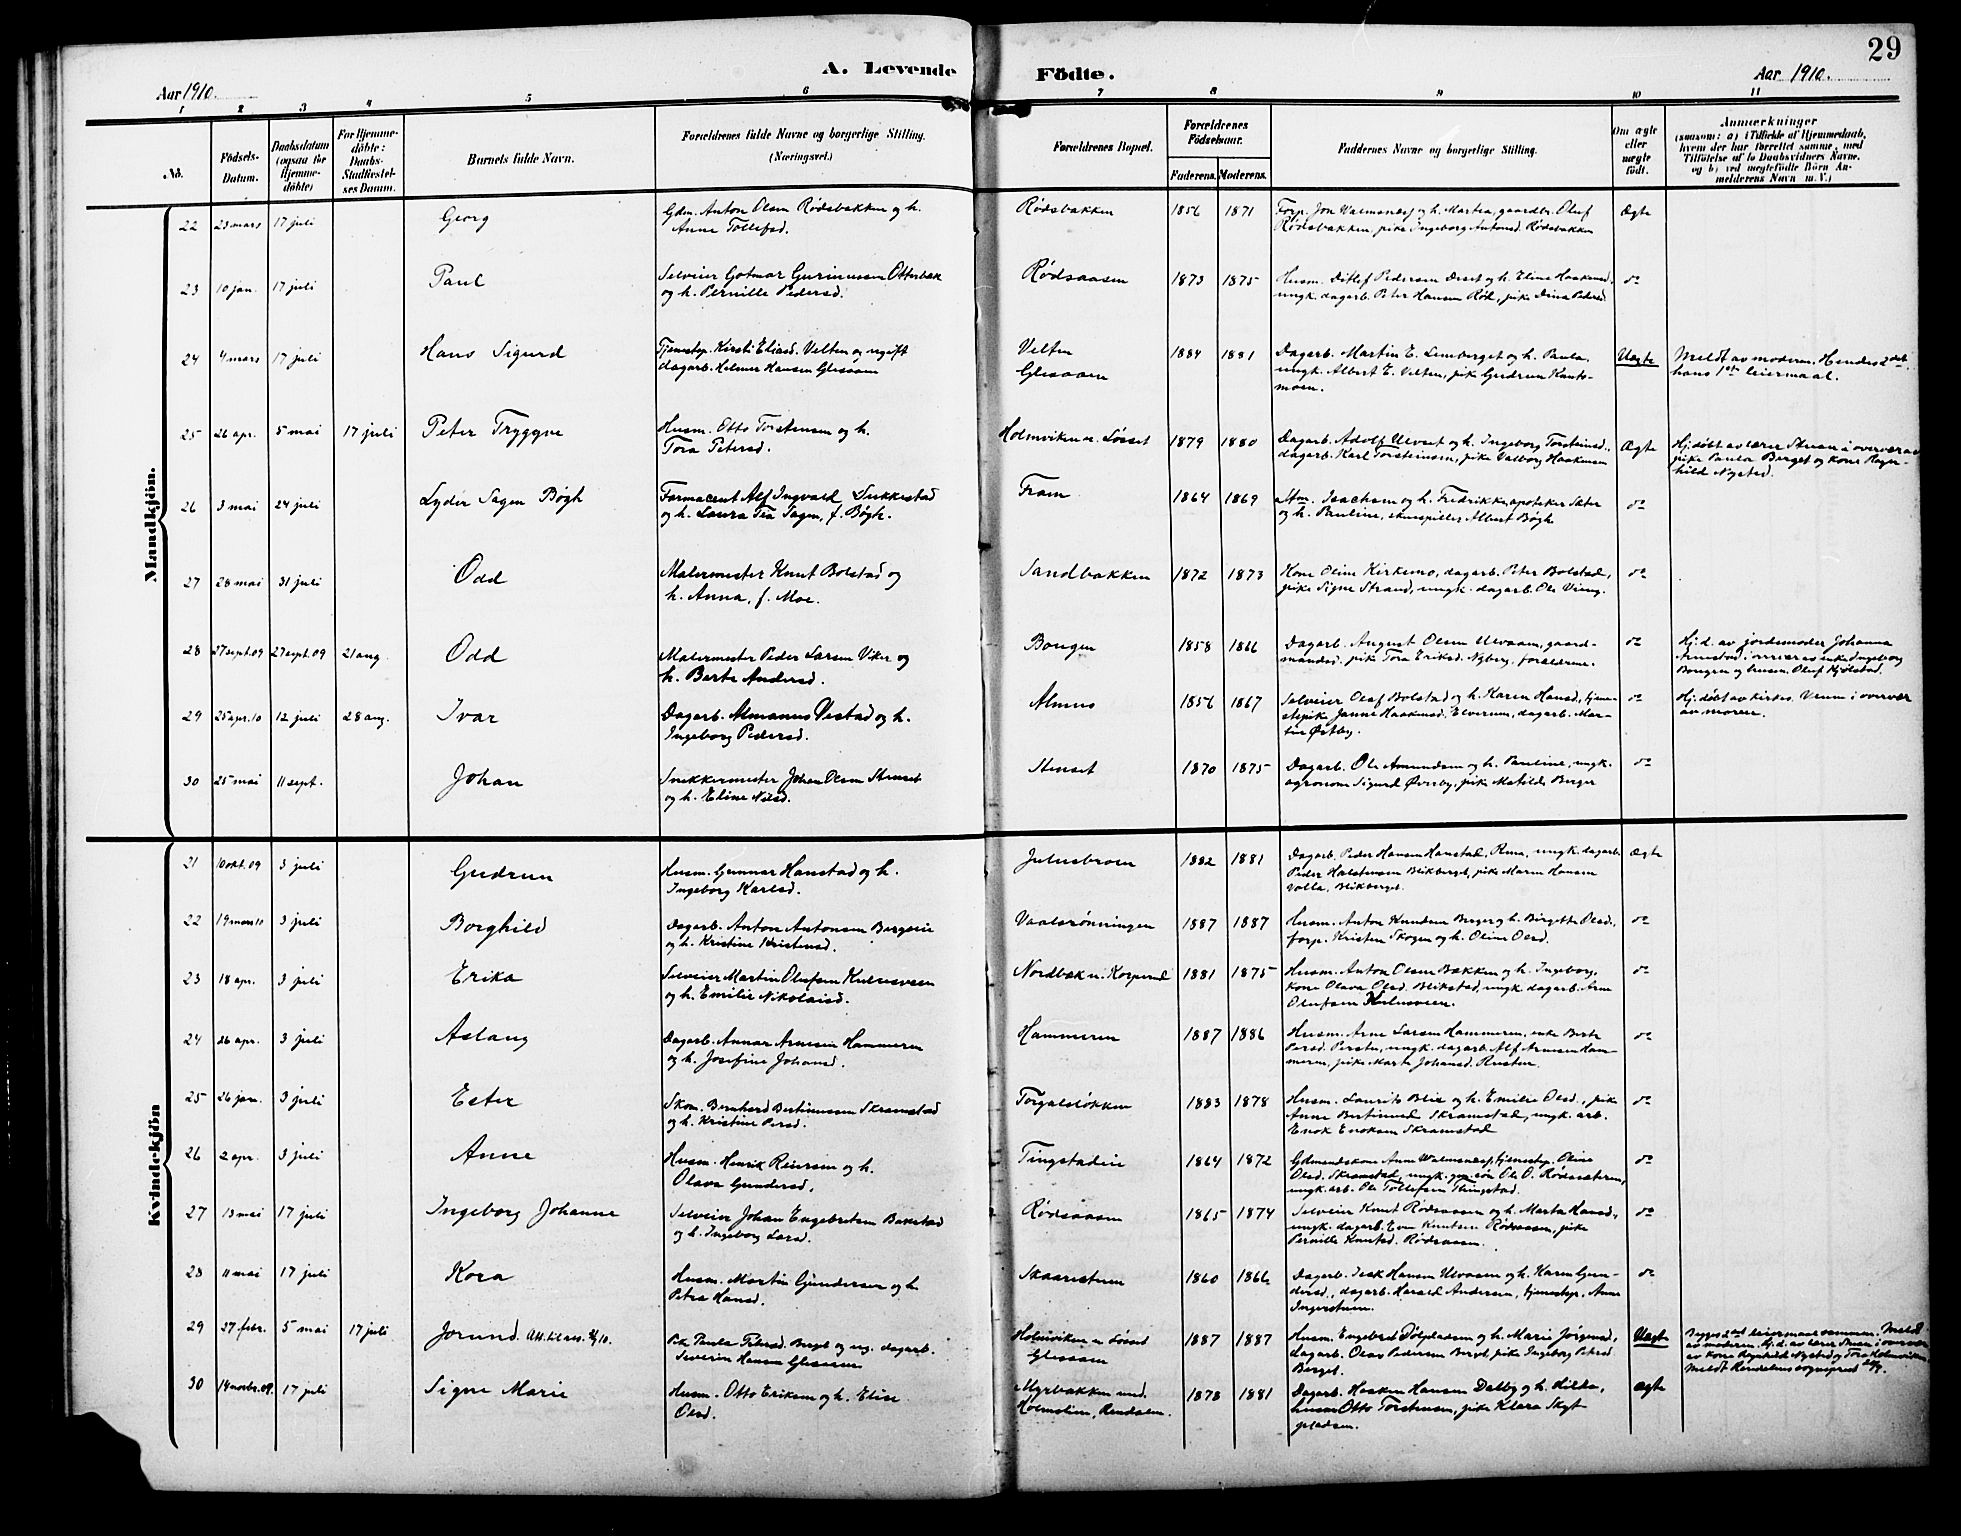 29
A. Levende Födte.
Aar 1910.
Aar 1910.
1 2 3 4 5 6 7 8 9 10 11
No.
Födsels-Datum.
Daabsdatum (ogsaa for Hjemmedöbte)
For Hjemmedöbte: Daabs-Stadfæstelses Datum.
Barnets fulde Navn.
Forældrenes fulde Navne og borgerlige Stilling. (Næringsvei.)
Forældrenes Bopæl.
Forældrenes Födselsaar.
Faderens. Moderens.
Faddernes Navne og borgerlige Stilling.
Om ægte eller uægte födt.
Anmærkninger
(saasom: a) i Tilfælde af Hjemmedaab, hvem der har forrettet samme, med Tilföielse af to Daabsvidners Navne, og b) ved uegtefödte Börn Anmelderens Navn m. V.)
Mandkjön.
22 23 mars 17 juli Georg
Gdm. Anton Olsen Rødsbakken og h.
Anne Tollefsd.
Rødsbakken 1856 1871
Forp. Jon Valmsnæs og h. Martea, gaardbr. Oluf
Rødsbakken, pike Ingeborg Antonsd. Rødsbakken
Ægte
23 10 jan. 17 juli Paul
Selveier Gotmar Gurinussen Otterbæk
og h. Pernille Pedersd.
Rødsaasen 1873 1875
Husm. Ditlef Pedersen Øeset og h. Eline Haakensd.,
ungk. dagarb. Peter Hansen Rød, pike Drina Pedersd.
do
24 4 mars 17 juli Hans Sigurd
Tjenestep. Kirsti Eliasd. Velten og ugift
dagarb. Helmer Hansen Glesaaen
Velten
Glesaaen
1884 1881
Dagarb. Martin E. Lemberget og h. Paula,
ungk. Albert E. Velten, pike Gudrun Kants-
moen.
Uægte
Meldt av moderen. Hendes 2det
hans 1ste leiermaal.
25 26 apr. 5 mai 17 juli Peter Tryggve
Husm. Otto Torstensen og h.
Tora Petersd.
Holmviken u. Løsset 1879 1880
Dagarb. Adolf Ulvset og h. Ingeborg Torsteinsd.,
dagarb. Karl Torsteinsen, pike Valborg Haakensen
Ægte
Hj. døbt av lærer Struen i overvær av
pike Paula Berget og kone Regn-
hild Nysted.
26 3 mai 24 juli Lyder Sagen Bøgh
Farmaceut Alf Ingvald Lukkestad
og h. Laura Tea Sagen, f. Bøgh.
Fram 1864 1869
Isachsen og h. Fredrikke, apoteker Sæter
og h. Pauline, skuespiller Albert Bøgh
do
27 28 mai 31 juli Odd
Malermester Knut Bolstad og
h. Anna, f. Moe.
Sandbakken 1872 1873
Kone Oline Kirkemo, dagarb. Peter Bolstad,
pike Signe Strand, ungk. dagarb. Ole Vreng.
do
28 27 sept. 09 27 sept. 09 21 aug. Odd
Malermester Peder Larsen Viker og
h. Berte Andersd.
Bougen 1858 1866
Dagarb. August Olsen Ulvaaen, gaard-
mandsd. pike Tora Eriksd. Nyberg, forældrene.
do
Hj. d. av jordemoder Johanna
Arnestad i overvær av enke Ingeborg
Bougen og Oluf Kjølstad.
29 25 apr. 10 12 juli 28 aug. Ivar
Dagarb. Almanus Vestad og h.
Ingeborg Pedersd.
Almus 1856 1867
Selveier Olaf Bolstad og h. Karen Hansd., tjene-
stepik Janna Haakensd. Elverum, dagarb. Mar-
tin Østby.
do
Hj. døbt av kirkes. Venn i overvær
av moren.
30 25 mai 11 sept. Johan
Snekkermester Johan Olsen Stenset
og h. Eline Nilsd.
Stenset 1870 1875
Dagarb. Ole Amundsen og h. Pauline, ungk.
agronom Sigurd Øvreby, pike Matilde Berger
do
Kvindekjön
21 10 okt. 09 3 juli Gudrun
Husm. Gunnar Hanstad og h.
Ingeborg Karlsd.
Juliusbroen 1882 1881
Dagarb. Peder Hansen Hanstad, Rena, ungk. dagarb.
Peder Halstensen Blikberget, pike Maren Hansen
volla, Blikberget.
Ægte
22 19 mars 10 3 juli Borghild
Dagarb. Anton Antonsen Bergerie
og h. Kristine Kristensd.
Vaalrønningen 1887 1887
Husm. Anton Knudsen Berger og h. Birgette Olsd.
forp. Kristen Skogen og h. Oline Olsd.
do
23 18 apr. 3 juli Erika
Selveier Martin Olufsen Kulusveen
og h. Emilie Nikolaisd.
Nordbæk u. Korperud 1881 1875
Husm. Anton Olsen Bakken og h. Ingeborg,
kone Olava Olsd. Blikstad, ungk. dagarb. Arne
Olufsen Kulusveen.
do
24 26 apr. 3 juli Aslaug
Dagarb. Annar Arnesen Hammeren
og h. Josefine Johansd.
Hammeren 1887 1886
Husm. Arne Larsen Hammeren, enke Berte
Persd. Persten, ungk. dagarb. Alf Arnesen Ham-
meren, pike Marte Johansd. Rusten.
do
25 26 jan. 3 juli Ester
Skom. Bernhard Bertinussen Skramstad
og h. Kristine Persd.
Torgalsløkken 1883 1878
Husm. Laurits Blix og h. Emilie Olsd., pike
Anne Bertinusd. Skramstad, ungk. arb.
Enok Enoksen Skramstad
do
26 2 apr. 3 juli Anne
Husm. Henrik Reiersen og h.
Olava Gundersd.
Tingstadeie 1864 1872
Gdmandskone Anne Valmsnæs, tjenestep. Oline
Olsd. Skramstad, ungk. gm. søn Ole O. Rødssæteren,
ungk. arb. Ole Tollefsen Thingstad.
do
27 13 mai 17 juli Ingeborg Johanne
Selveier Johan Engebretsen Bækstad
og h. Ingeborg Larsd.
Rødsaasen 1865 1874
Selveier Knut Rødsaasen og h. Marte Hansd.,
ungk. dagarb. Even Knutsen Rødsaasen, pike
Pernille Knutsd. Rødsaasen.
do
28 11 mai 17 juli Kora
Husm. Martin Gundersen og h.
Petra Hansd.
Skaaristuen 1860 1866
Dagarb. Isak Hansen Ulvaaen og h. Karen Gun-
dersd., dagarb. Harald Andersen, tjenestep. Anne
Ingerstuen.
do
29 27 febr. 5 mai 17 juli Jorund.
Pik. Paula Petersd. Berget og ug. dagarb.
Severin Hansen Glesaaen
Holmviken u. Løsset
Glesaaen
1887 1887
Husm. Engebret Dølpladsen og h. Marie Jørgensd.,
dagarb. Olav Pedersen Berget, pike Ingeborg Petersd.
Berget.
Uægte
Begges 2det leiermaal sammen. Meldt
av moderen. Hj. d. av lærer Struen i overvær
av kone Regnhild Nysted og Tora Holmviken.
Meldt Rendalens sogneprest
30 14 novbr. 09. 17 juli Signe Marie
Husm. Otto Eriksen og h. Elise
Olsd.
Myrbakken und.
Holmolien, Rendalen.
1878 1881
Dagarb. Haaken Hansen Dalby og h. Hilda,
husm. Otto Torstensen, pike Klara Skyt-
pladsen.
Ægte